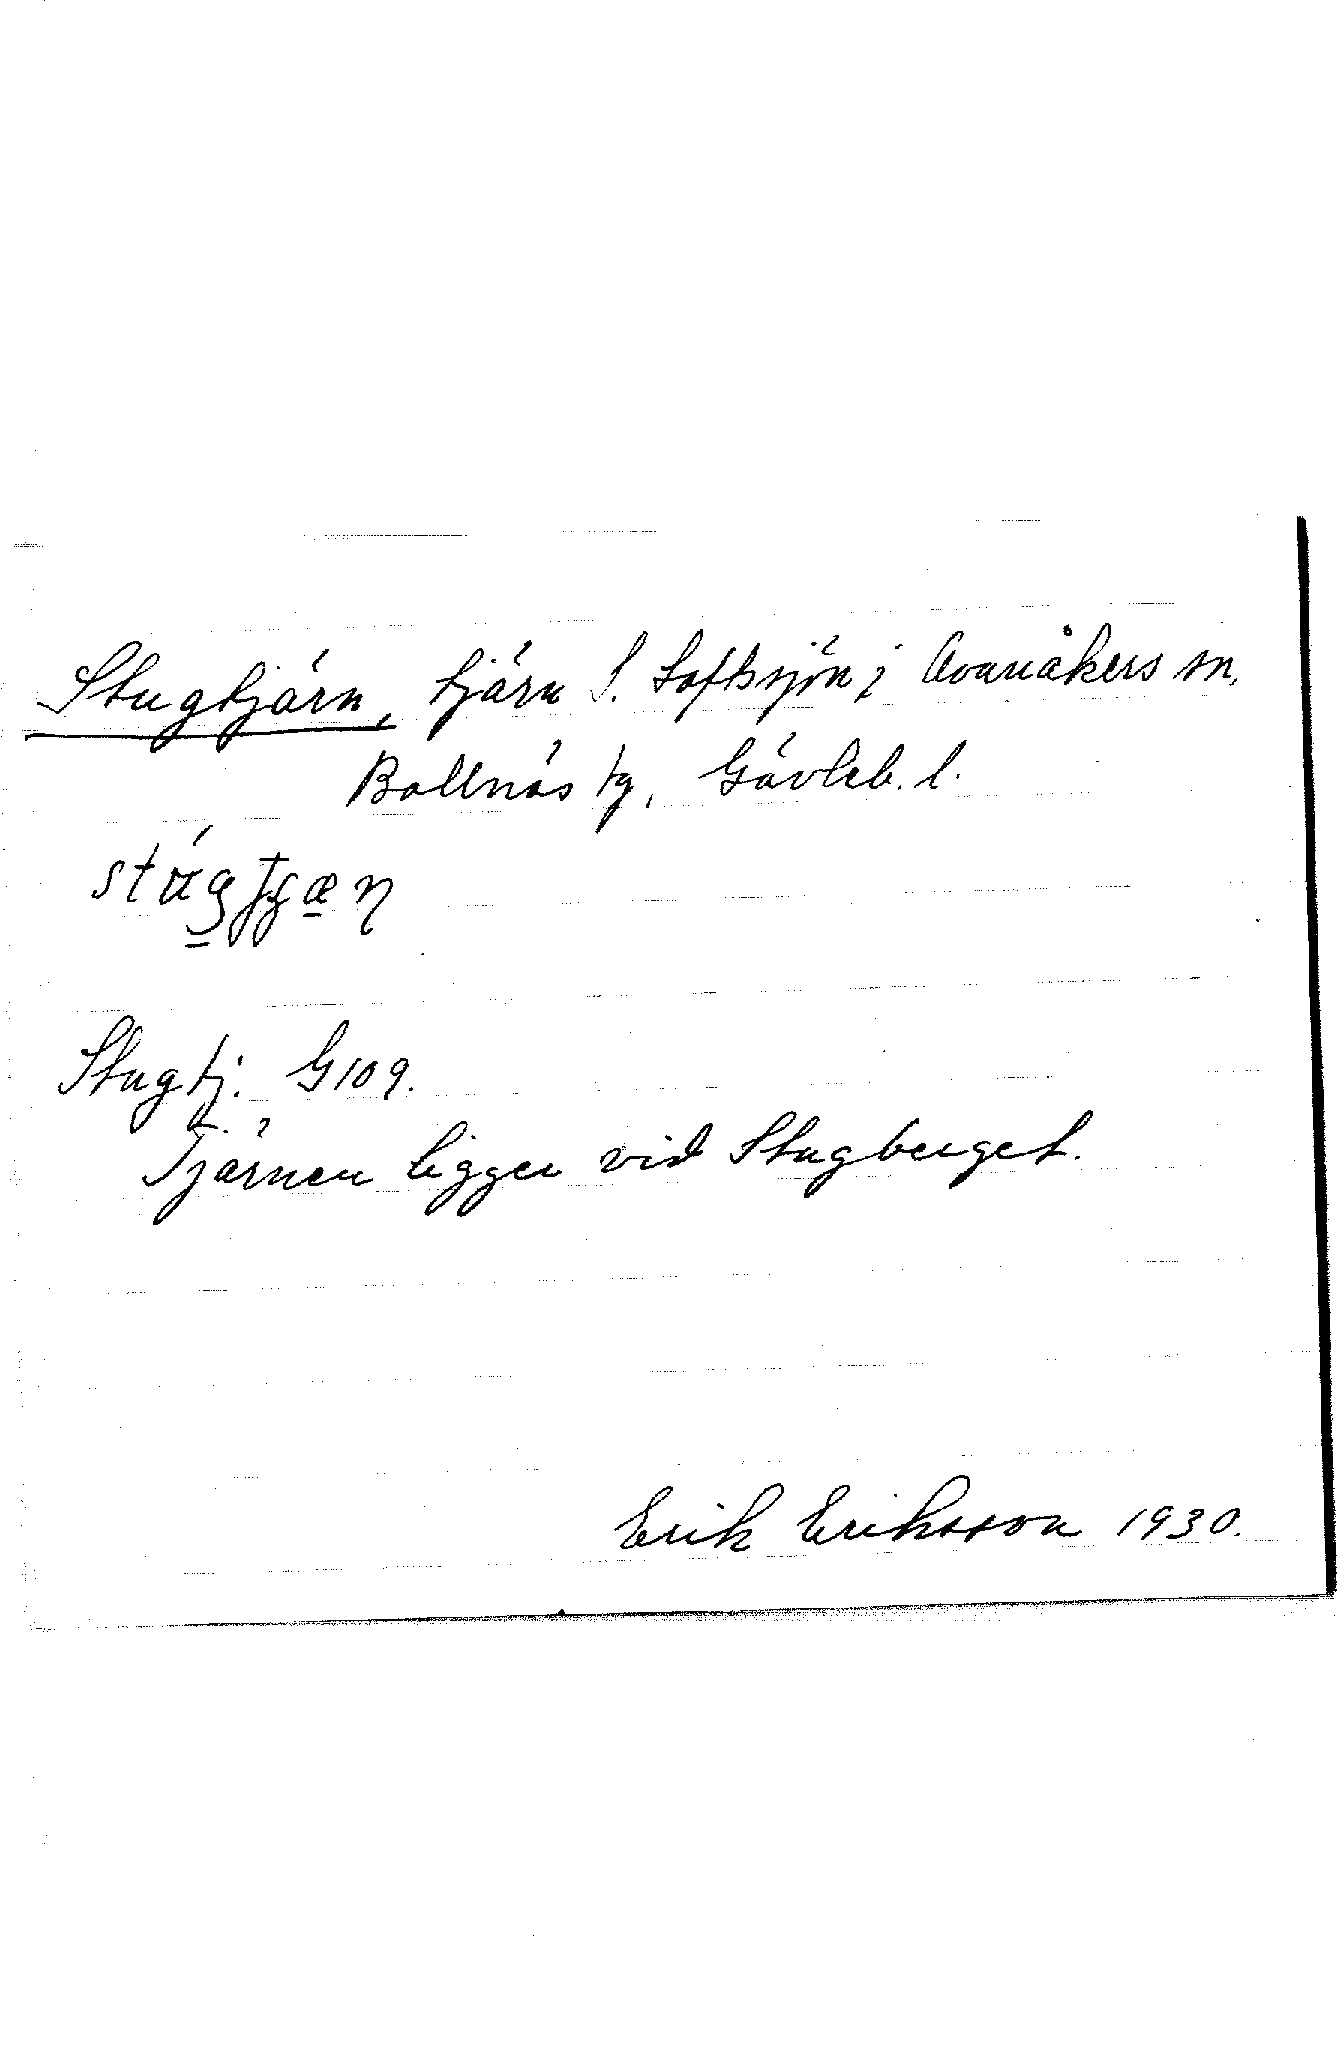 Stugtjärn, tjärn S. Loftsjön i Ovanåkers sn,
Bollnäs tg, Gävleb. l.
Stugtj. G109.
Tjärnen ligger vid Stugberget.
Erik Eriksson 1930.